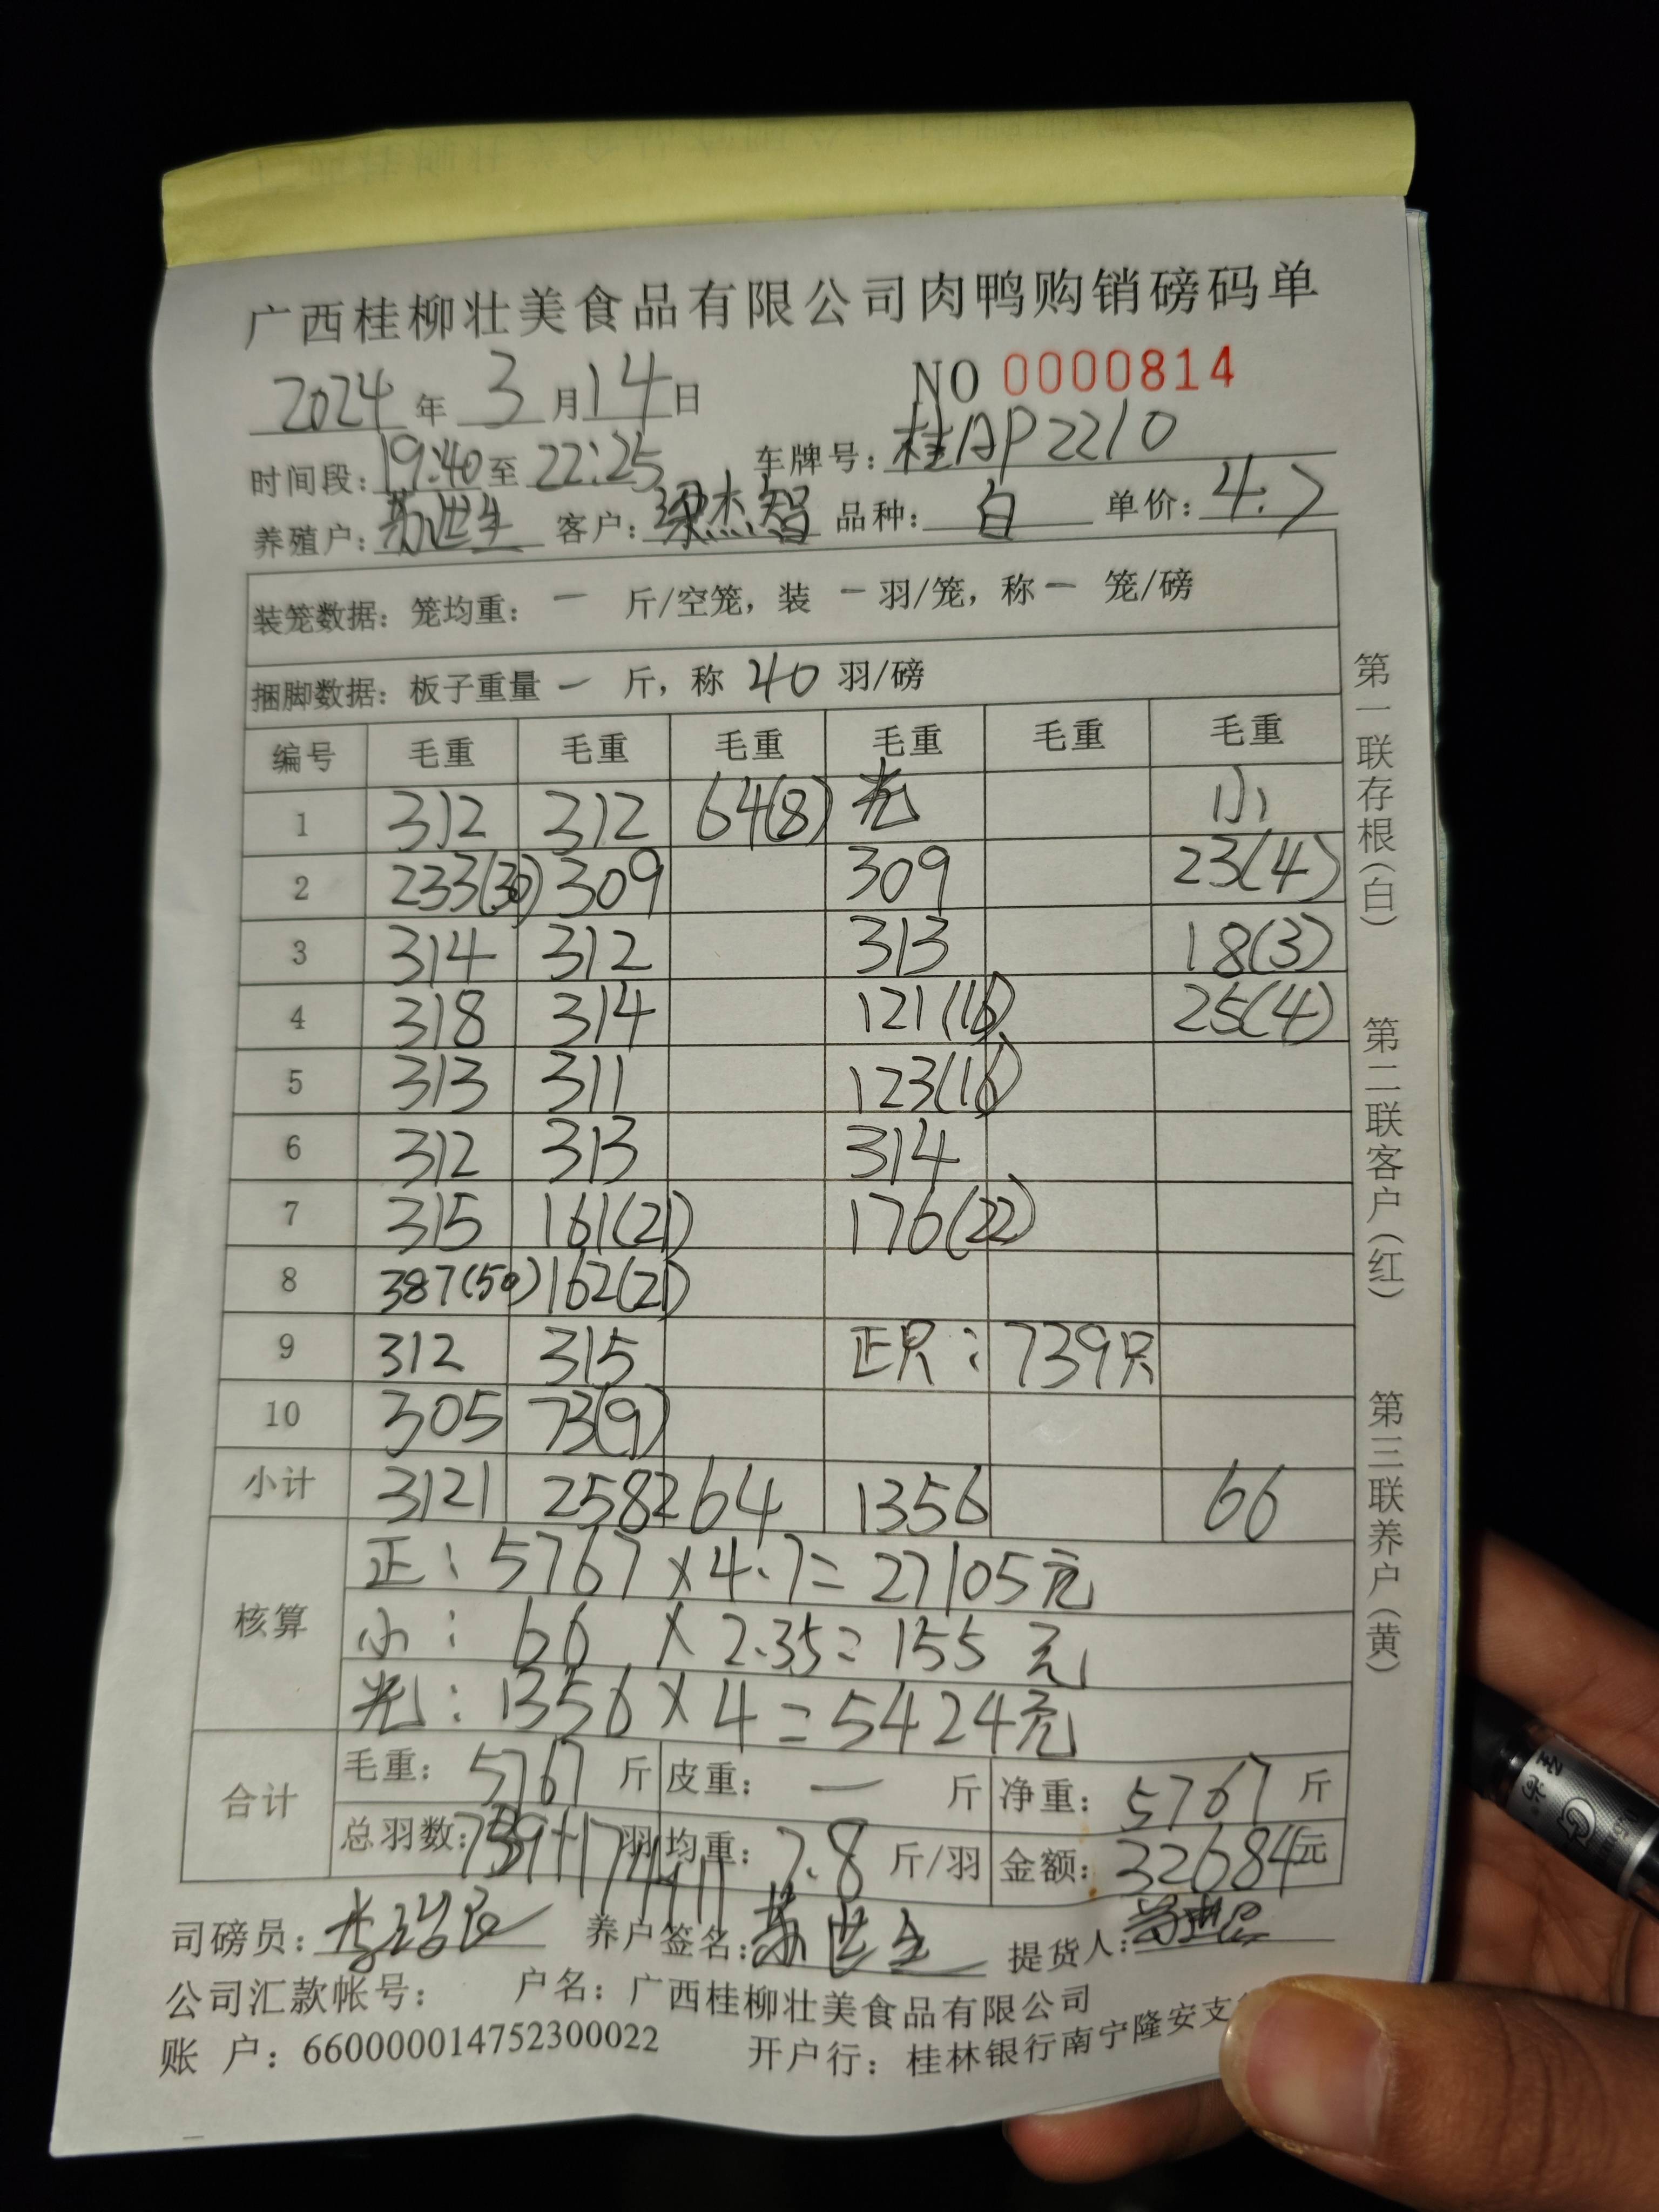 广西桂柳壮美食品有限公司肉鸭购销磅码单
2024年3月14日 NO 0000814
时间段:19:40至22:25 车牌号:桂AP2210
养殖户:苏世生 客户:梁杰智 品种:白 单价:4.7
装笼数据:笼均重:一 斤/空笼,装 一 羽/笼,称 一 笼/磅
捆脚数据:板子重量 一 斤,称 40 羽/磅
编号 毛重 毛重 毛重 毛重 毛重 毛重
1 312 312 64(8) 光 小
2 233(30) 309 309 23(4)
3 314 312 313 18(3)
4 318 314 121(16) 25(4)
5 313 311 123(16)
6 312 313 314
7 315 161(21) 176(22)
8 387(50) 162(21)
9 312 315 正只:739只
10 305 73(9)
小计 3121 2582 64 1356 66
核算 正:5767×4.7=27105元
小:66×2.35=155元
光:1356×4=5424元
合计 毛重:5767斤 皮重:一 斤 净重:5767斤
总羽数:739+174+11羽 均重:7.8斤/羽 金额:32684元
司磅员: 养户签名:苏世生 提货人:
公司汇款帐号: 户名:广西桂柳壮美食品有限公司
账 户:660000014752300022 开户行:桂林银行南宁隆安支
第一联存根(白)
第二联客户(红)
第三联养户(黄)